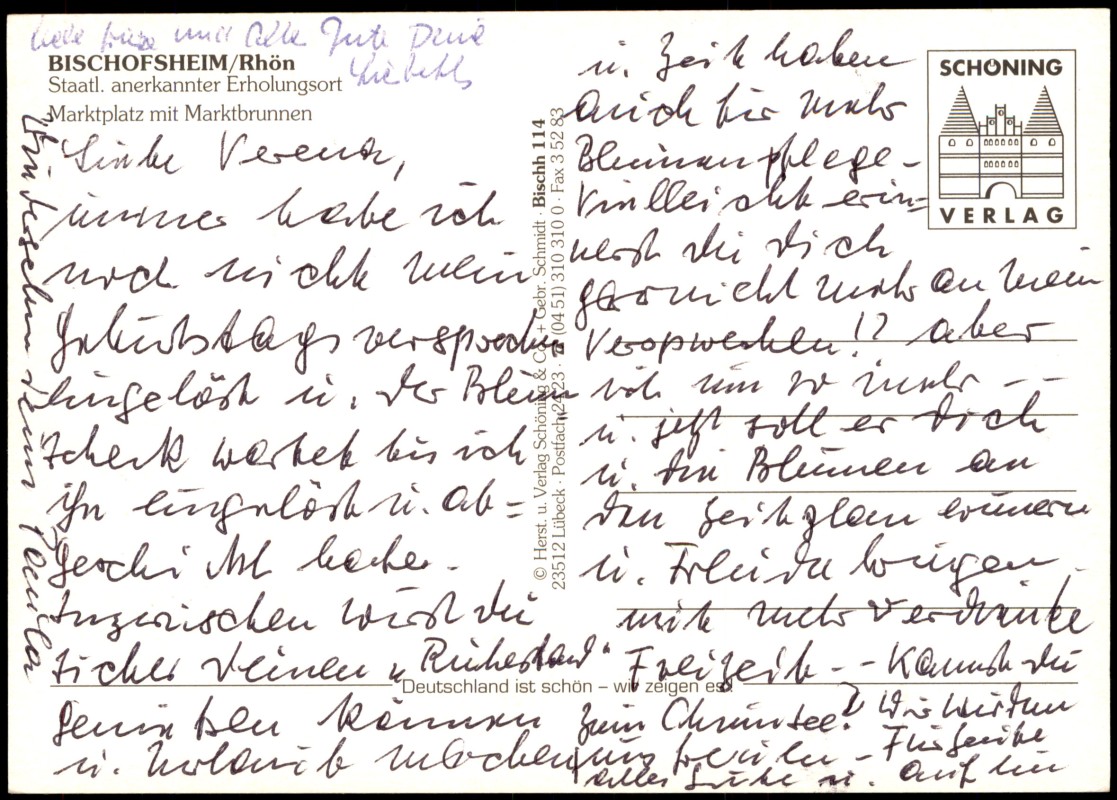 Liebe Grüße und alles Gute Deine
Liebeth
BISCHOFSHEIM/Rhön
Staatl. anerkannter Erholungsort
Marktplatz mit Marktbrunnen
Liebe Verena,
immer habe ich
noch nicht mein
Geburtstagsversprechen
eingelöst u. der Blumen
scheck wartet bis ich
ihn eingelöst u. ab=
geschickt habe.
Inzwischen wirst du
sicher deinen "Ruhestand"
genießen können
u. Urlaub machen
u. Zeit haben
auch für mehr
Blumenpflege -
Vielleicht erin=
nerst du dich
garnicht mehr an mein
Versprechen!? aber
ich um so mehr - -
u. jetzt soll er Dich
u. die Blumen an
den Zeitplan erinnern
u. Freude bringen
mit mehr verdiente
Freizeit - - Kommst du
zum Chiemsee? Wir würden
uns freuen - Für heute
alles Gute u. auf ein
Wiedersehen deine
© Herst. u. Verlag Schöning & Co. + Gebr. Schmidt · Bischh 114
23512 Lübeck · Postfach 24 23 · ☎ (04 51) 310 310 0 · Fax 3 52 83
SCHÖNING
VERLAG
Deutschland ist schön – wir zeigen es!